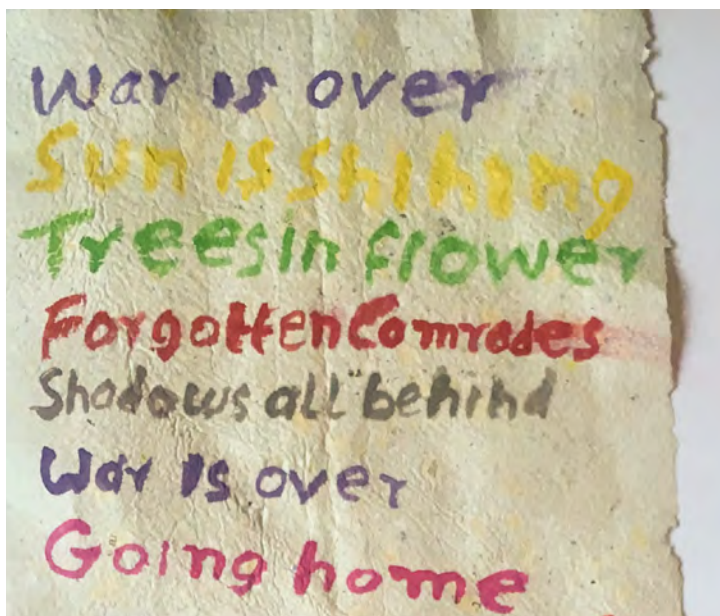 War is over
Sun is shining
Trees in flower
Forgotten Comrades
Shadows all behind
War is over
Going home